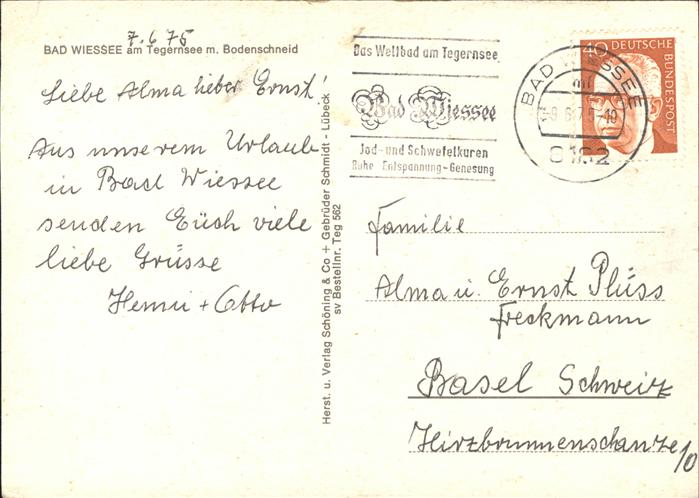 7.6.75
BAD WIESSEE am Tegernsee m. Bodenschneid
Liebe Alma lieber Ernst!
Aus unserem Urlaub
in Bad Wiessee
senden Euch viele
liebe Grüsse
Henni + Otto
Herst. u. Verlag Schöning & Co + Gebrüder Schmidt - Lübeck
sv Bestellnr. Teg 562
Das Weltbad am Tegernsee
Bad Wiessee
Jod- und Schwefelkuren
Ruhe Entspannung-Genesung
BAD WIESSEE
8182
40 DEUTSCHE
BUNDESPOST
Familie
Alma u. Ernst Plüss
Freckmann
Basel Schweiz
Hirzbrunnenschanze